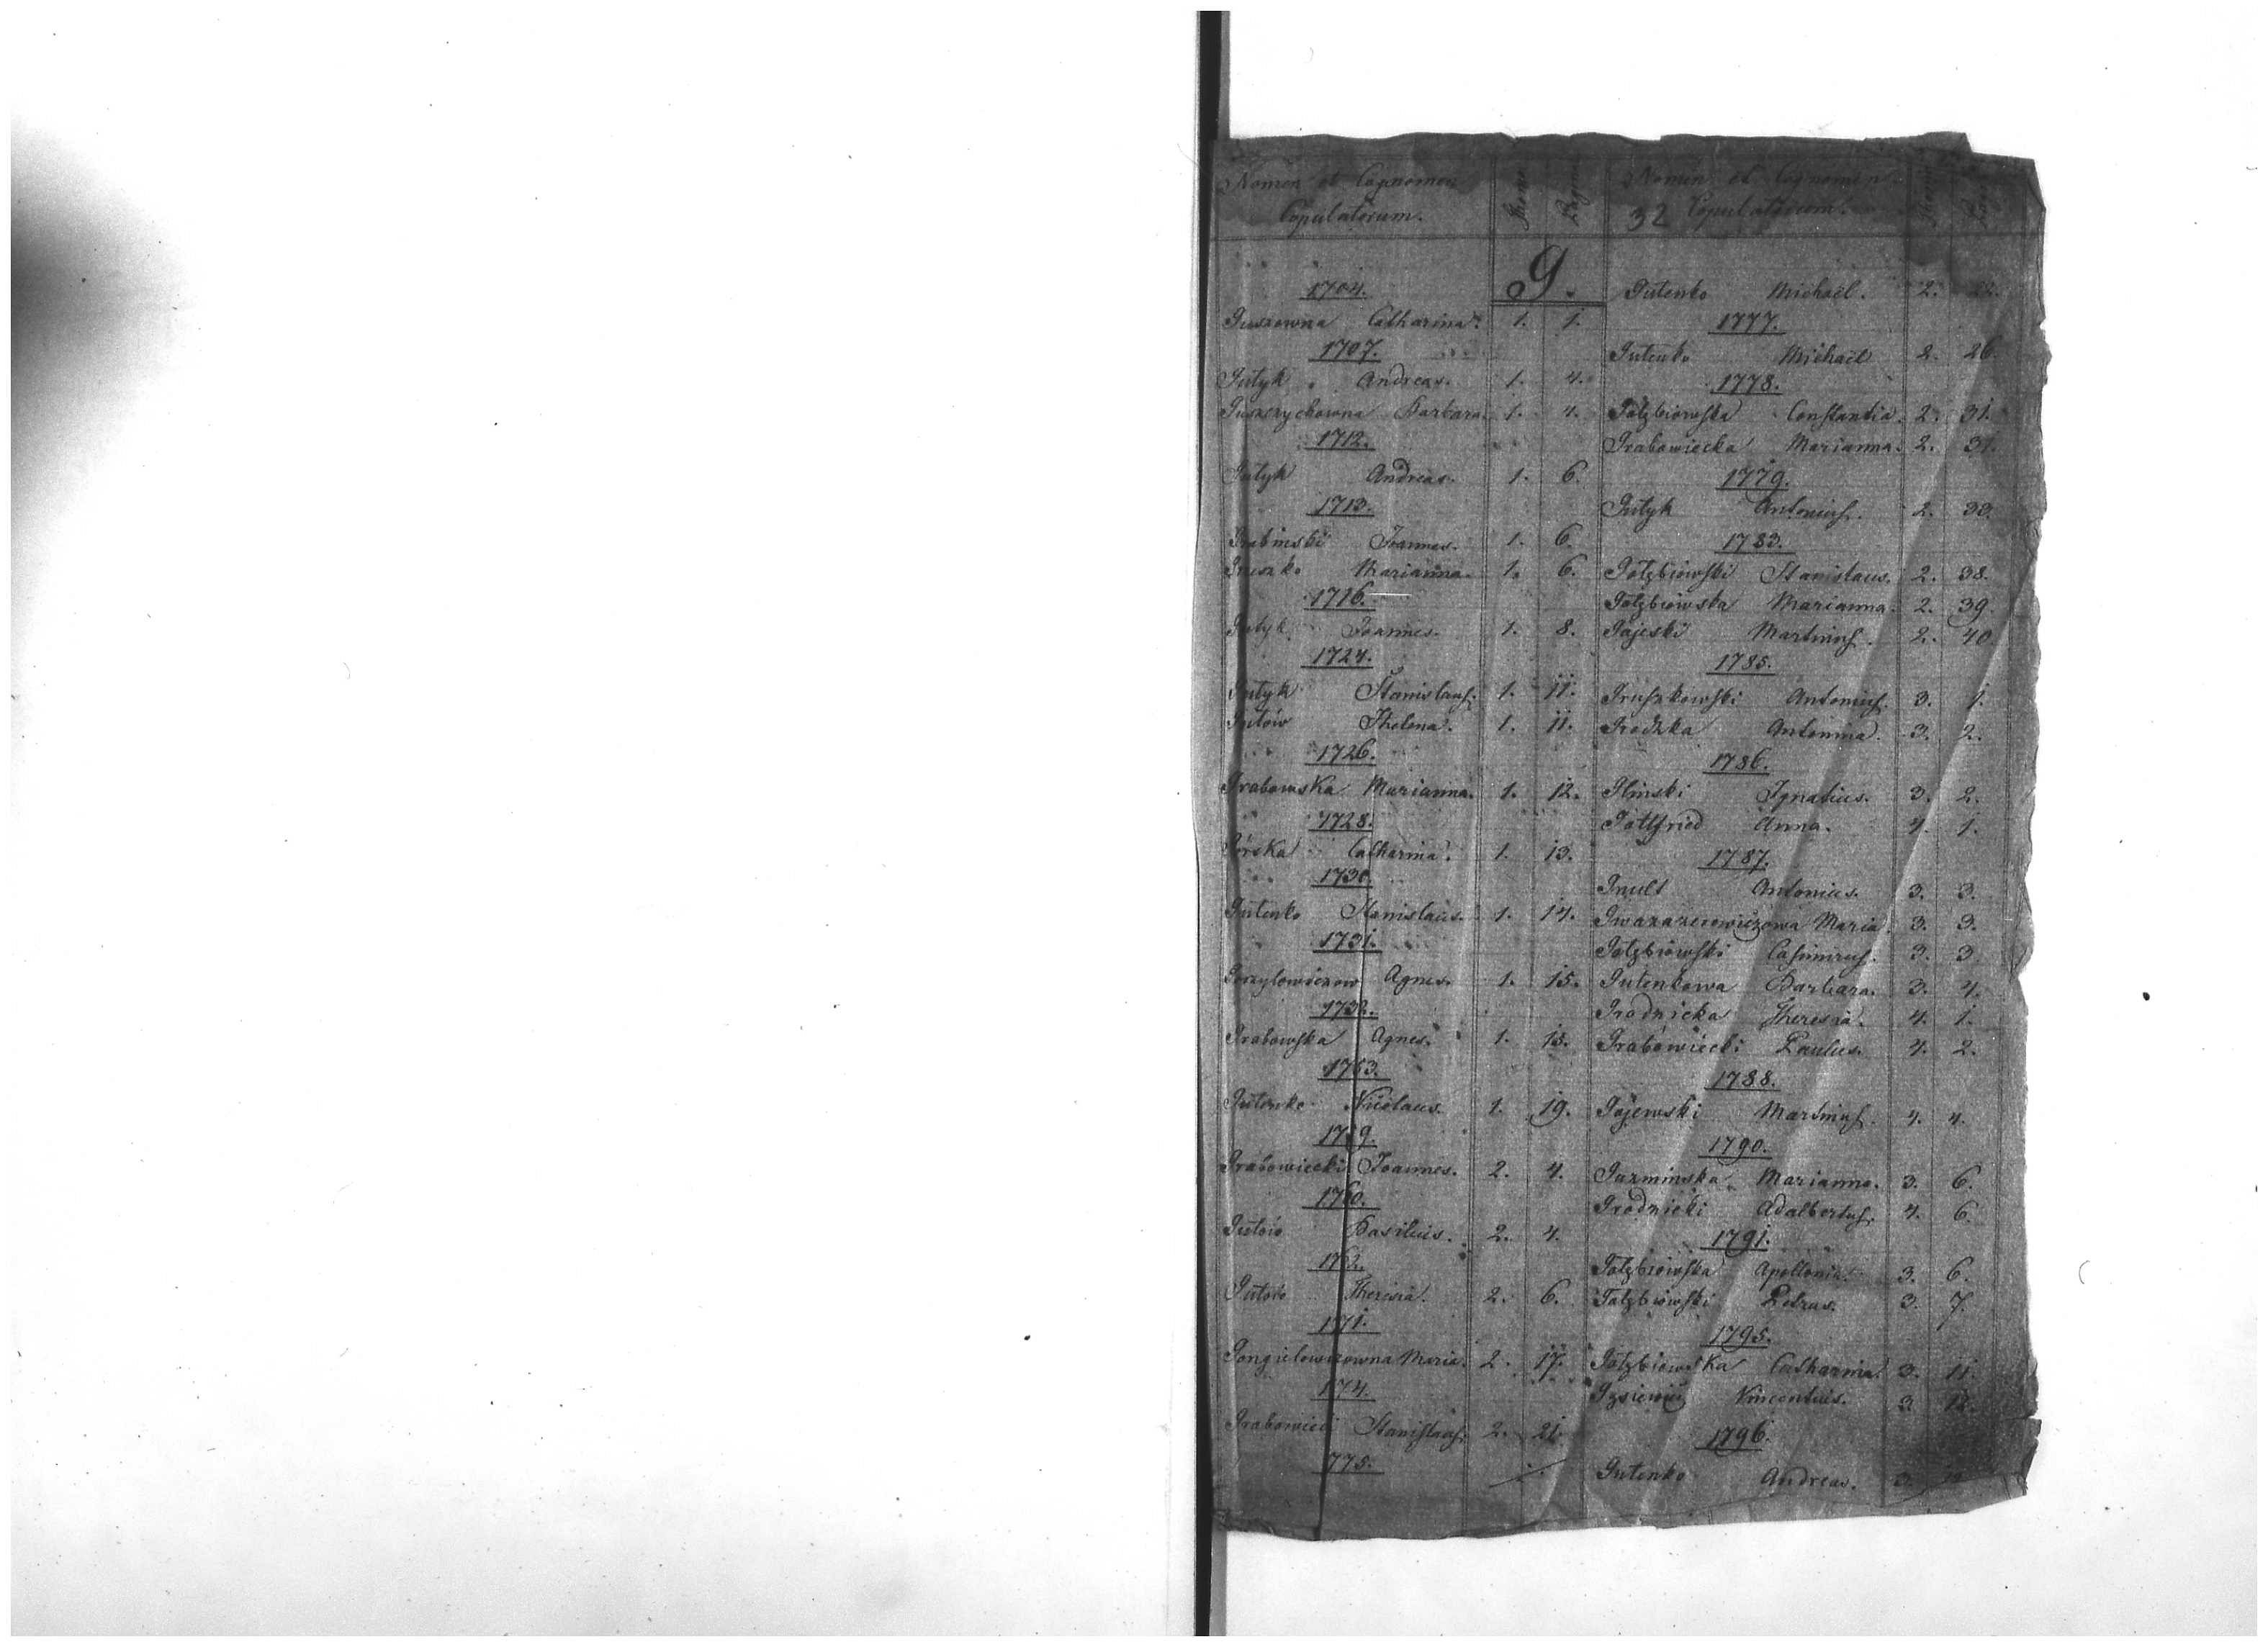 Nomen et Cognomen
Copulatorum.
Thomus
Pagina
G.
1704.
Guszowna Catharina. 1. 1.
1707.
Gutyk Andreas. 1. 4.
Guszczychowna Barbara. 1. 4.
1712.
Gutyk Andreas. 1. 6.
1713.
Grabinski Joannes. 1. 6.
Gruszko Marianna. 1. 6.
1716.
Gutyk Joannes. 1. 8.
1724.
Gutyk Stanislaus. 1. 11.
Gutów Helena. 1. 11.
1726.
Grabowska Marianna. 1. 12.
1728.
Górska Catharina. 1. 13.
1730.
Gutenko Stanislaus. 1. 14.
1731.
Agnes. 1. 15.
1732.
Grabowska Agnes. 1. 15.
1763.
Gutenko Nicolaus. 1. 19.
Grabowiecki Joannes. 2. 4.
1760.
Gutów Basilius. 2. 4.
Gutów Theresia. 2. 6.
1771.
Maria. 2. 17.
1774.
Grabowiecki Stanislaus. 2. 21.
1775.
Nomen et Cognomen
32 Copulatorum.
Gutenko Michaël. 2. 22.
1777.
Gutenko Michaël 2. 26.
1778.
Gołzbiowska Constantia. 2. 31.
Grabowiecka Marianna. 2. 31.
1779.
Gutyk Antonius. 2. 33.
1783.
Gołzbiowski Stanislaus. 2. 38.
Gołzbiowska Marianna. 2. 39.
Gajeski Martinus. 2. 40
1785.
Gruszkowski Antonius. 3. 1.
Grodzka Antonina. 3. 2.
1786.
Glinski Ignatius. 3. 2.
Gottfried Anna. 4. 1.
1787.
Antonius. 3. 3.
Maria. 3. 3.
Gołzbiowski Casimirus. 3. 3
Gutenkowa Barbara. 3. 4.
Grodnicka Theresia. 4. 1.
Grabowiecki Paulus. 4. 2.
1788.
Gajewski Martinus. 4. 4.
1790.
Guzminska Marianna. 3. 6.
Grodnicki Adalbertus. 4. 6.
1791.
Gołzbiowska Apollonia. 3. 6.
Gołzbiowski Petrus. 3. 7.
1795.
Gołzbiowska Catharina. 3. 11.
Vincentius. 3. 12.
1796.
Gutenko Andreas. 3.